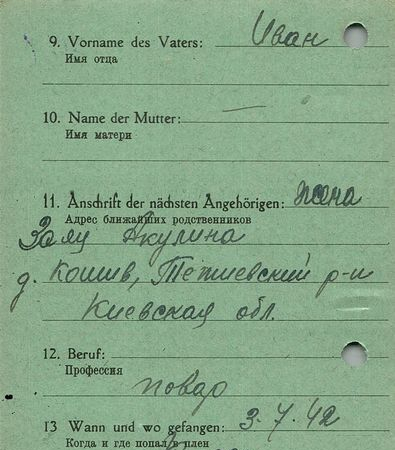 9. Vorname des Vaters: Иван
Имя отца
10. Name der Mutter: —
Имя матери
11. Anschrift der nächsten Angehörigen: жена
Адрес ближайших родственников
Заяц Акулина
д. Кошив, Тетиевский р-н
Киевская обл.
12. Beruf:
Профессия
повар
13 Wann und wo gefangen: 3.7.42
Когда и где попал в плен